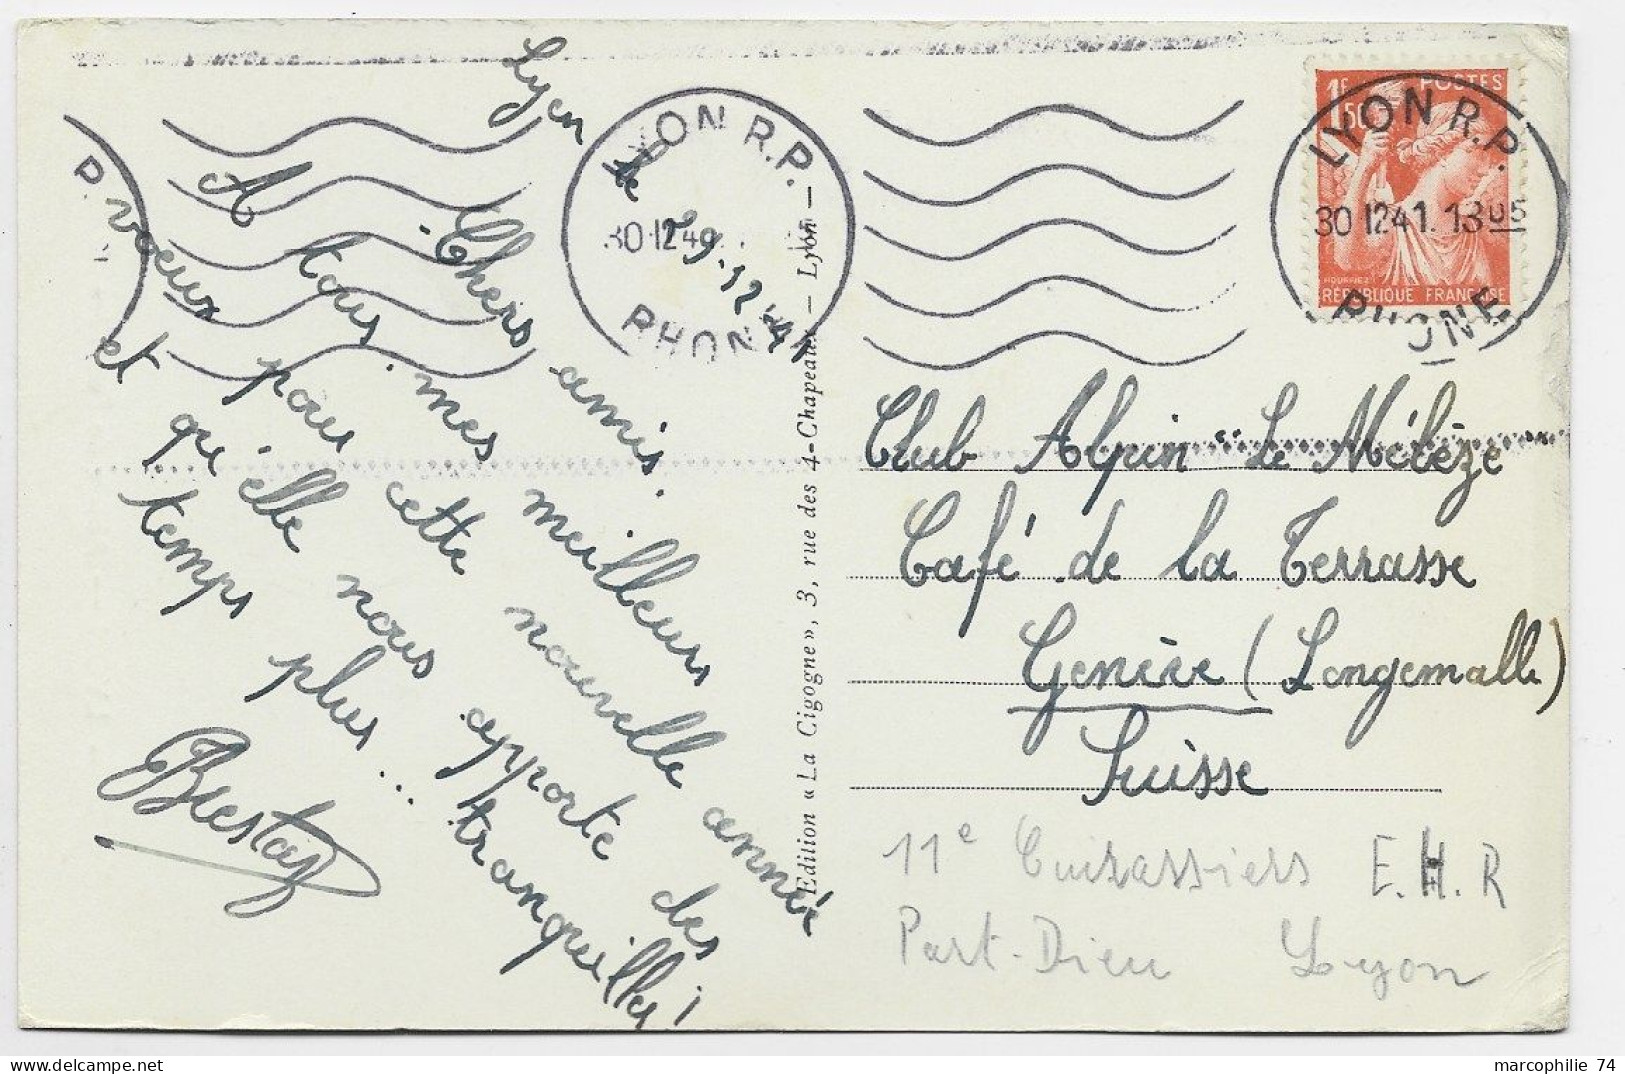 Lyon le 29.12.41
Chers amis.
A tous mes meilleurs
vœux pour cette nouvelle année
et qu'elle nous apporte des
temps plus... tranquilles!
Edition « La Cigogne », 3, rue des 4-Chapeaux — Lyon —
LYON R.P.
RHONE
1F50 POSTES
RÉPUBLIQUE FRANÇAISE
LYON R.P.
30 12 41. 13 05
RHONE
Club Alpin "Le Mélèze"
Café de la Terrasse
Genève (Longemalle)
Suisse
11e Cuirassiers E.H.R
Part-Dieu Lyon
marcophilie 74